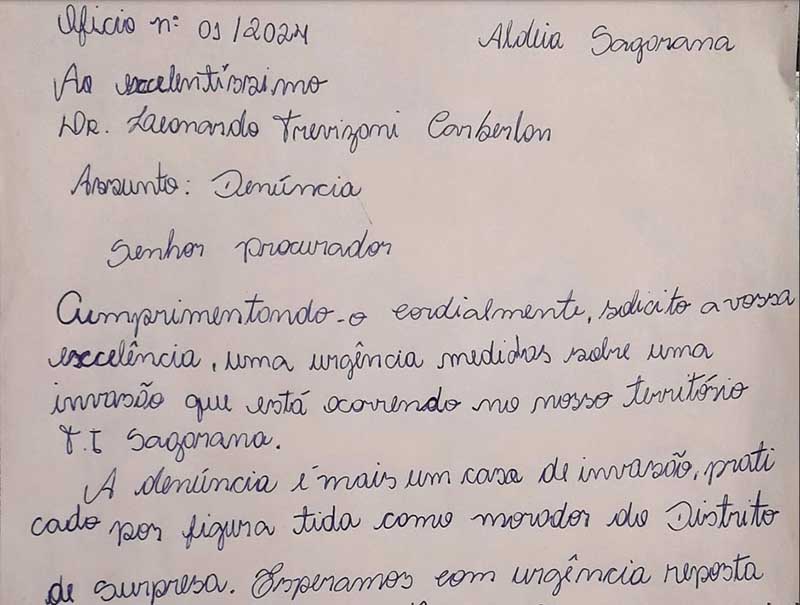 Oficio nº 01/2024 Aldeia Sagorana
Ao excelentíssimo
DR. Leonardo Trevizani Carberlon
Assunto: Denúncia
Senhor procurador
Cumprimentando-o cordialmente, solicito a vossa
excelência, uma urgência medidas sobre uma
invasão que está ocorrendo no nosso território
T.I Sagorana.
A denúncia é mais um caso de invasão, prati
cado por figura tida como morador do Distrito
de surpresa. Esperamos com urgência reposta